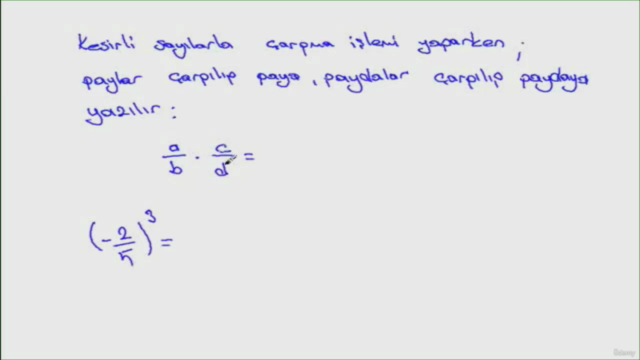 Kesirli sayılarla çarpma işlemi yaparken ;
paylar çarpılıp paya , paydalar çarpılıp paydaya
yazılır :
a/b · c/d =
(-2/5)^3 =